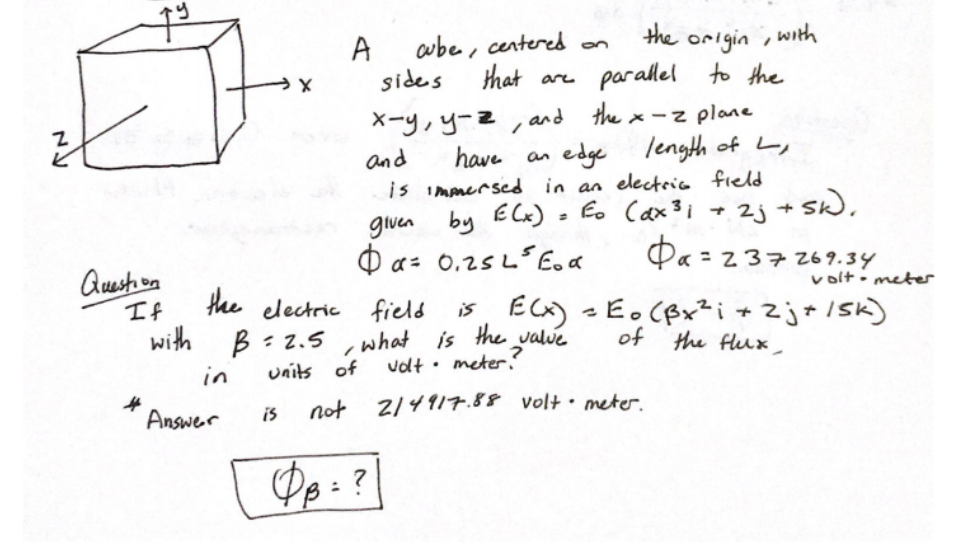 y
x
z
A cube, centered on the origin, with
sides that are parallel to the
x-y, y-z, and the x-z plane
and have an edge length of L,
is immersed in an electric field
given by E(x) = E₀ (αx³i + 2j + 5k).
Φα = 0.25 L⁵ E₀ α Φα = 237269.34
volt · meter
Question
If the electric field is E(x) = E₀ (βx²i + 2j + 15k)
with β = 2.5, what is the value of the flux,
in units of volt · meter?
* Answer is not 214917.88 volt · meter.
Φβ = ?